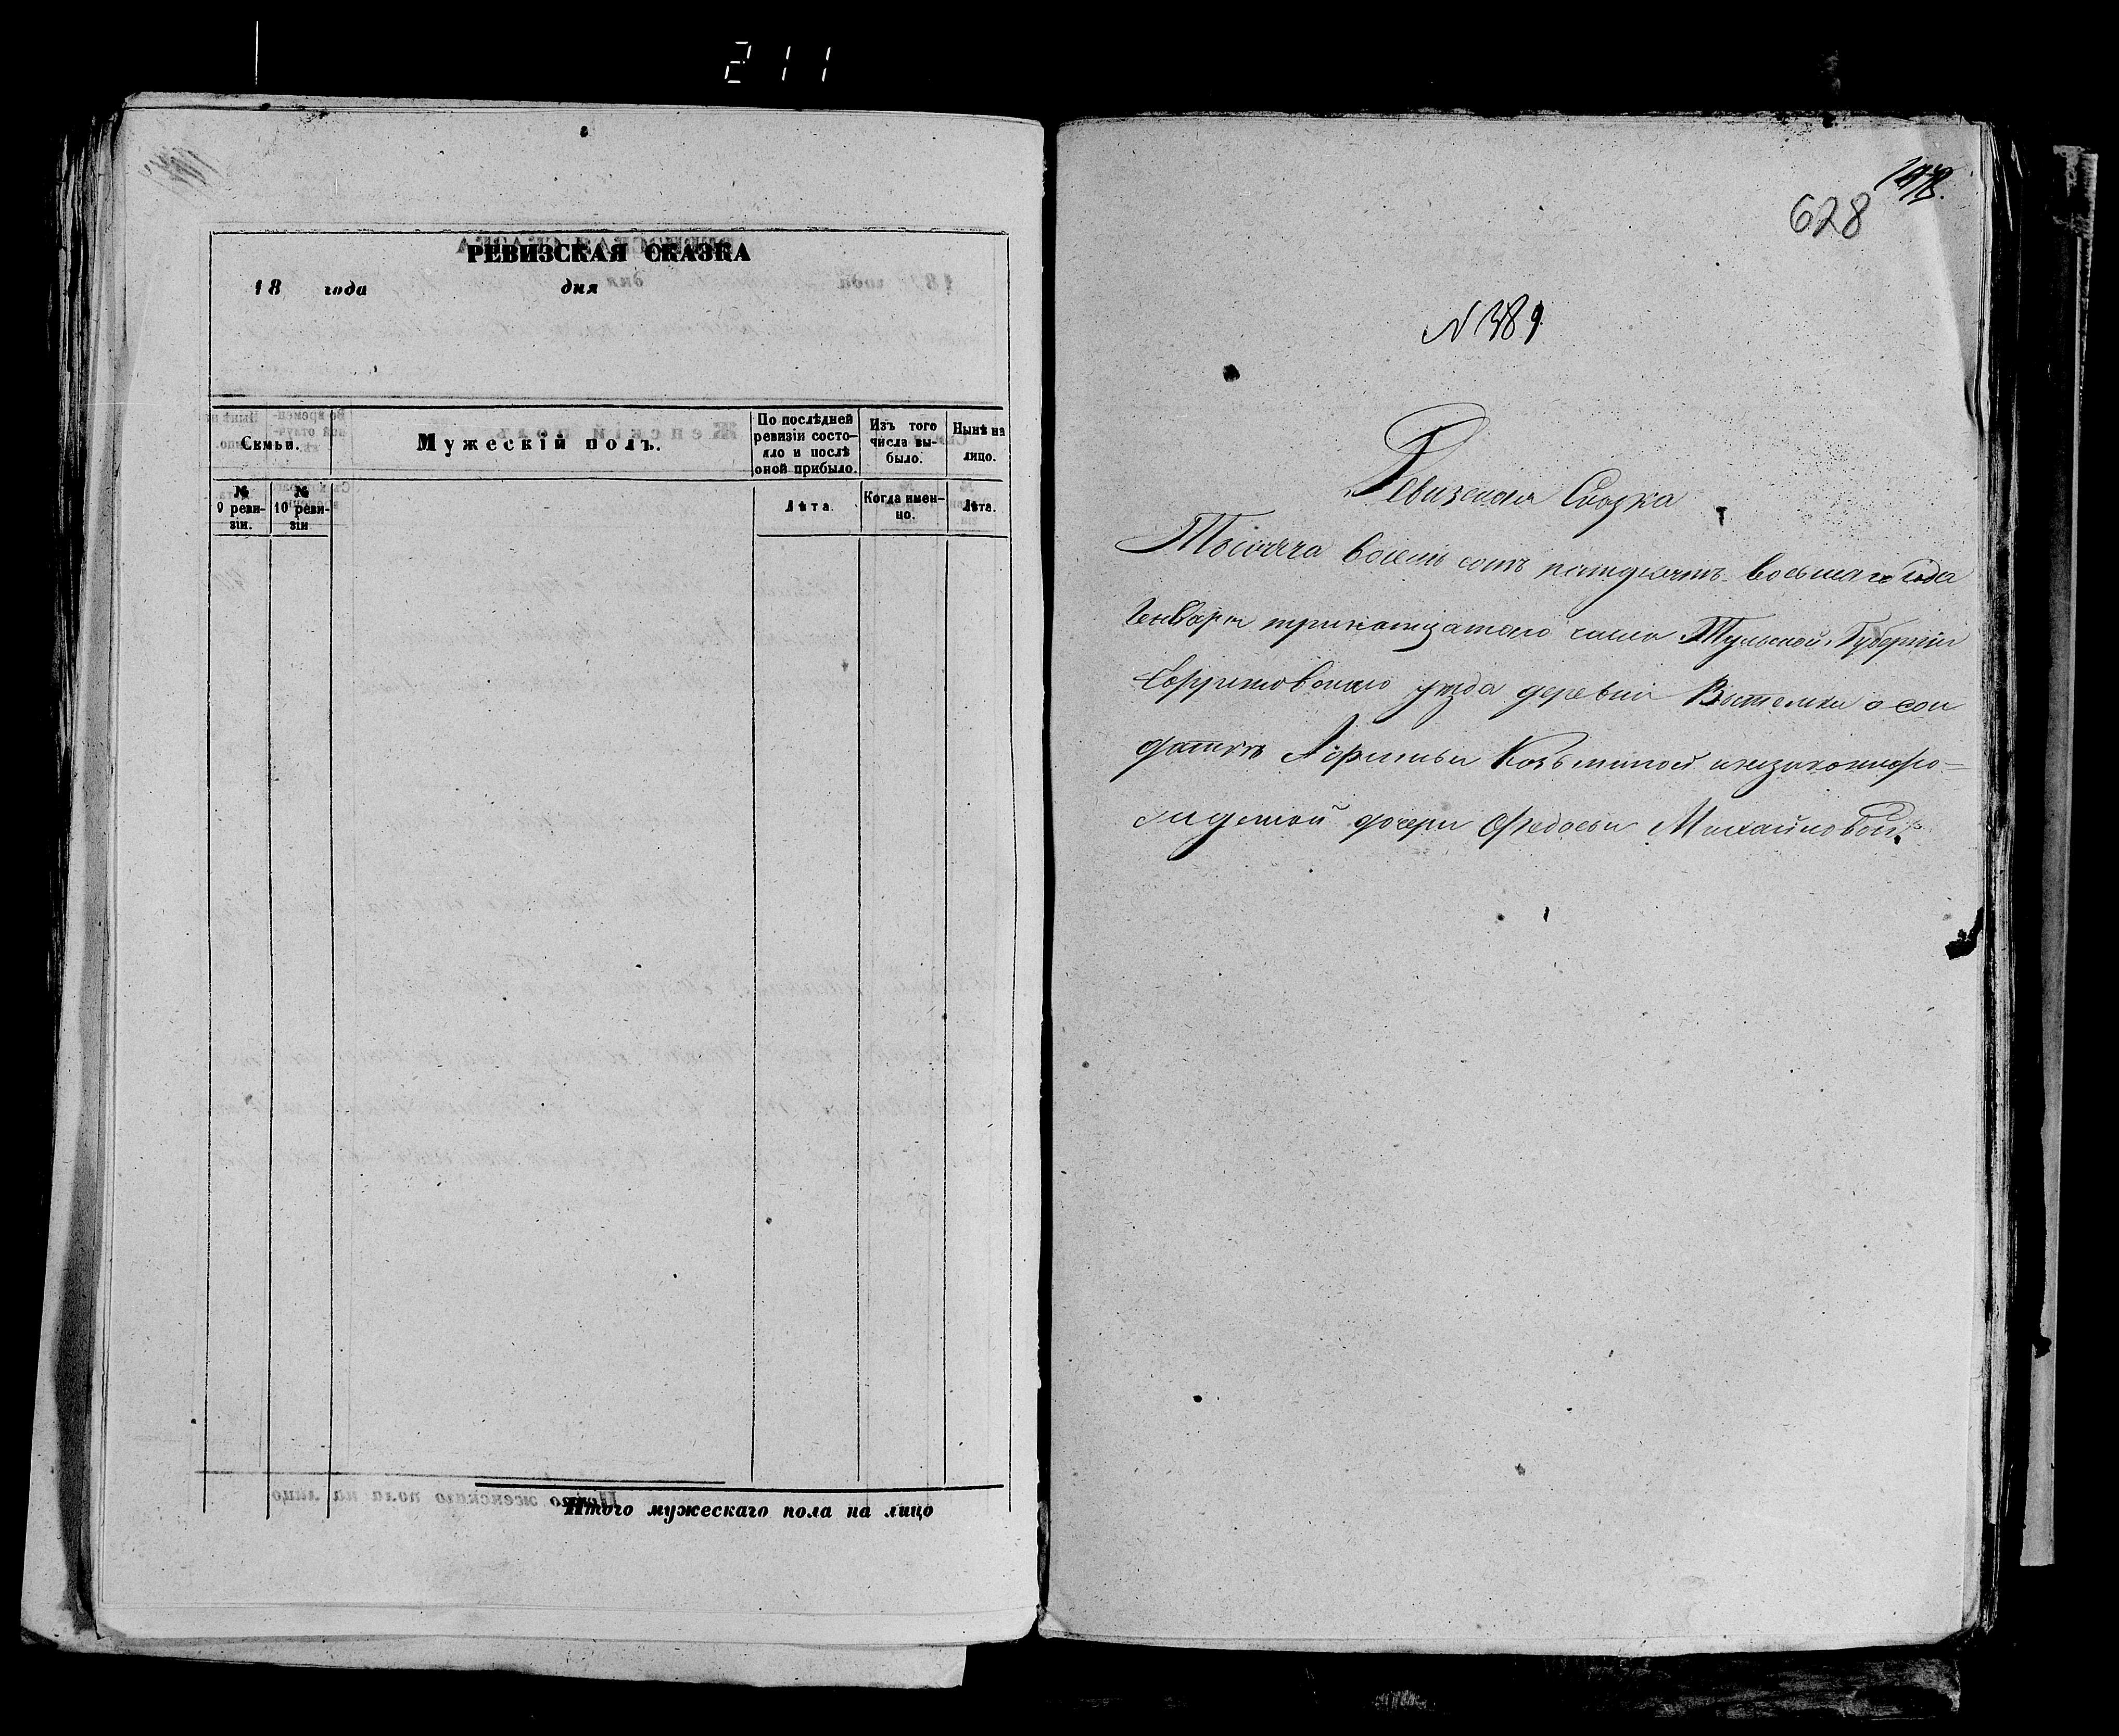 211
РЕВИЗСКАЯ СКАЗКА
18 года дня
Семьи.
Мужескій полъ.
По послѣдней ревизіи состо-яло и послѣ оной прибыло.
Изъ того числа вы-было.
Нынѣ на лицо.
№ 9 реви-зіи.
№ 10 реви-зіи
Лѣта.
Когда имен-но.
Лѣта.
Итого мужескаго пола на лицо
628
N 389
Ревизская Сказка
Тысяча восемь сотъ пятдесятъ восьмаго года
Генваря тритцатаго числа Тульской Губерніи
уѣзда деревни о сол
датки Афимьи Козьминой и незаконно ро=
жденной дочери Федосьи Михайловой.